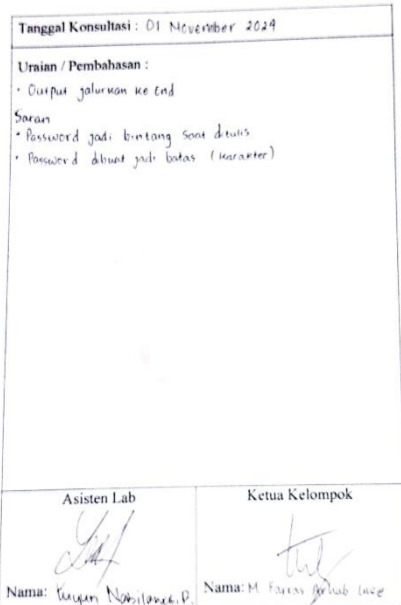 Tanggal Konsultasi : 01 November 2024
Uraian / Pembahasan :
· Output jalurkan ke End
Saran
· Password jadi bintang saat ditulis
· Password dibuat jadi batas (karakter)
Asisten Lab
Ketua Kelompok
Nama:
Nama: M. Farras